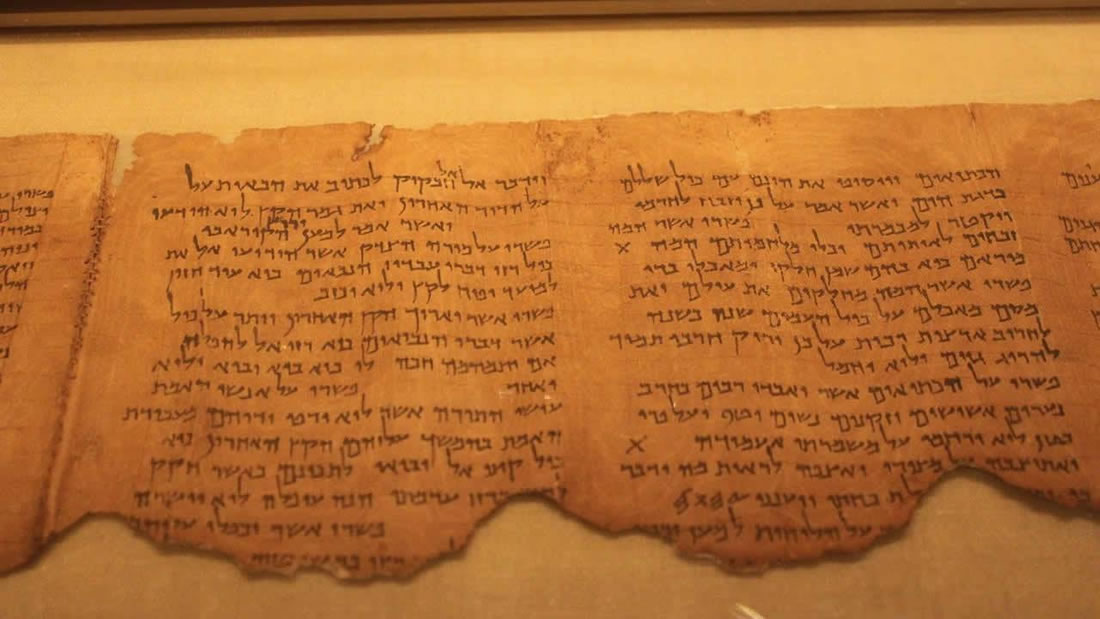 הכתיאים ויוסיפו את הונם עם כול שללם
כדגת הים ואשר אמר על כן יזבח לחרמו
ויקטר למכמרתו פשרו אשר המה
זבחים לאותותם וכלי מלחמותם המה X
מוראם כיא בהם שמן חלקו ומאכלו ברי
פשרו אשר המה מחלקים את עולם ואת
מסם מאכלם על כול העמים שנה בשנה
לחריב ארצות רבות על כן יריק חרבו תמיד
להרוג גוים ולוא יחמל
פשרו על הכתיאים אשר יאבדו רבים בחרב
נערים אשישים וזקנים נשים וטף ועל פרי
בטן לוא ירחמו על משמרתי אעמודה X
ואתיצבה על מצורי ואצפה לראות מה ידבר
ויענני 𐤉𐤄𐤅𐤄
על הלוחות למען
וידבר אל אל חבקוק לכתוב את הבאות על
על הדור האחרון ואת גמר הקץ לוא הודעו
ואשר אמר למען ירוץ הקורא בו
פשרו על מורה הצדק אשר הודיעו אל את
כול רזי דברי עבדיו הנבאים כיא עוד חזון
למועד יפיח לקץ ולוא יכזב
פשרו אשר יארוך הקץ האחרון ויתר על כול
אשר דברו הנביאים כיא רזי אל להפלה
אם יתמהמה חכה לו כיא בוא יבוא ולוא
יאחר פשרו על אנשי האמת
עושי התורה אשר לוא ירפו ידיהם מעבודת
האמת בהמשך עליהם הקץ האחרון כיא
כול קיצי אל יבואו לתכונם כאשר חקק
ערמתו הנה עופלה לוא יושרה
פשרו אשר יכפלו עליהם